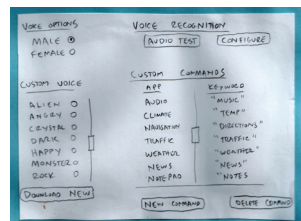 VOICE OPTIONS
MALE
FEMALE
CUSTOM VOICE
ALIEN
ANGRY
CRYSTAL
DARK
HAPPY
MONSTER
ROCK
DOWNLOAD NEW
VOICE RECOGNITION
AUDIO TEST
CONFIGURE
CUSTOM COMMANDS
APP KEYWORD
AUDIO "MUSIC"
CLIMATE "TEMP"
NAVIGATION "DIRECTIONS"
TRAFFIC "TRAFFIC"
WEATHER "WEATHER"
NEWS "NEWS"
NOTEPAD "NOTES
NEW COMMAND
DELETE COMMAND